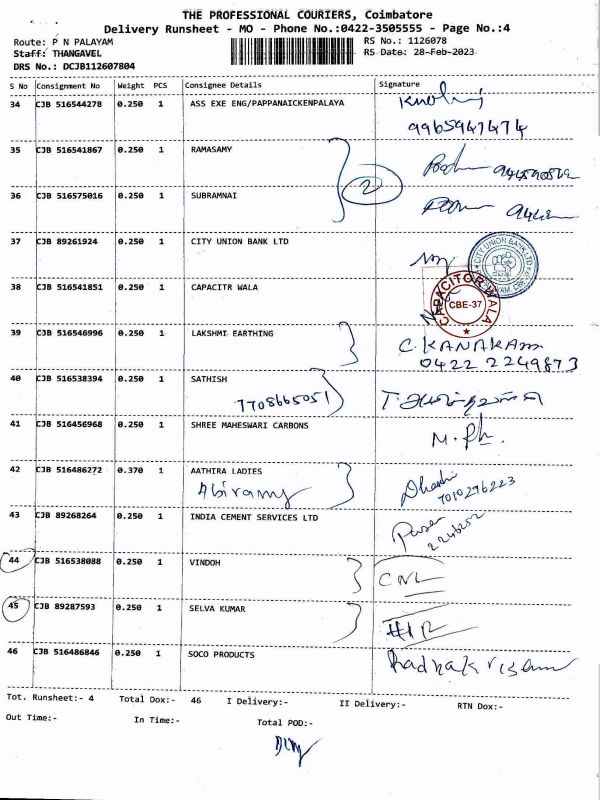 THE PROFESSIONAL COURIERS, Coimbatore
Delivery Runsheet - MO - Phone No.:0422-3505555 - Page No.:4
Route: P N PALAYAM RS No.: 1126078
Staff: THANGAVEL RS Date: 28-Feb-2023
DRS No.: DCJB112607804
S No Consignment No Weight PCS Consignee Details Signature
34 CJB 516544278 0.250 1 ASS EXE ENG/PAPPANAICKENPALAYA
9965947474
35 CJB 516541867 0.250 1 RAMASAMY
2
36 CJB 516575016 0.250 1 SUBRAMNAI
37 CJB 89261924 0.250 1 CITY UNION BANK LTD
CITY UNION BANK LTD
38 CJB 516541851 0.250 1 CAPACITR WALA
CAPACITOR WALA
CBE-37
39 CJB 516546996 0.250 1 LAKSHMI EARTHING
C. KANAKAM
0422 2249873
40 CJB 516538394 0.250 1 SATHISH
7708665051
41 CJB 516456968 0.250 1 SHREE MAHESWARI CARBONS
M. Ph.
42 CJB 516486272 0.370 1 AATHIRA LADIES
Abiramy
7010296223
43 CJB 89268264 0.250 1 INDIA CEMENT SERVICES LTD
44 CJB 516538088 0.250 1 VINDOH
CNL
45 CJB 89287593 0.250 1 SELVA KUMAR
46 CJB 516486846 0.250 1 SOCO PRODUCTS
Tot. Runsheet:- 4 Total Dox:- 46 I Delivery:- II Delivery:- RTN Dox:-
Out Time:- In Time:- Total POD:-